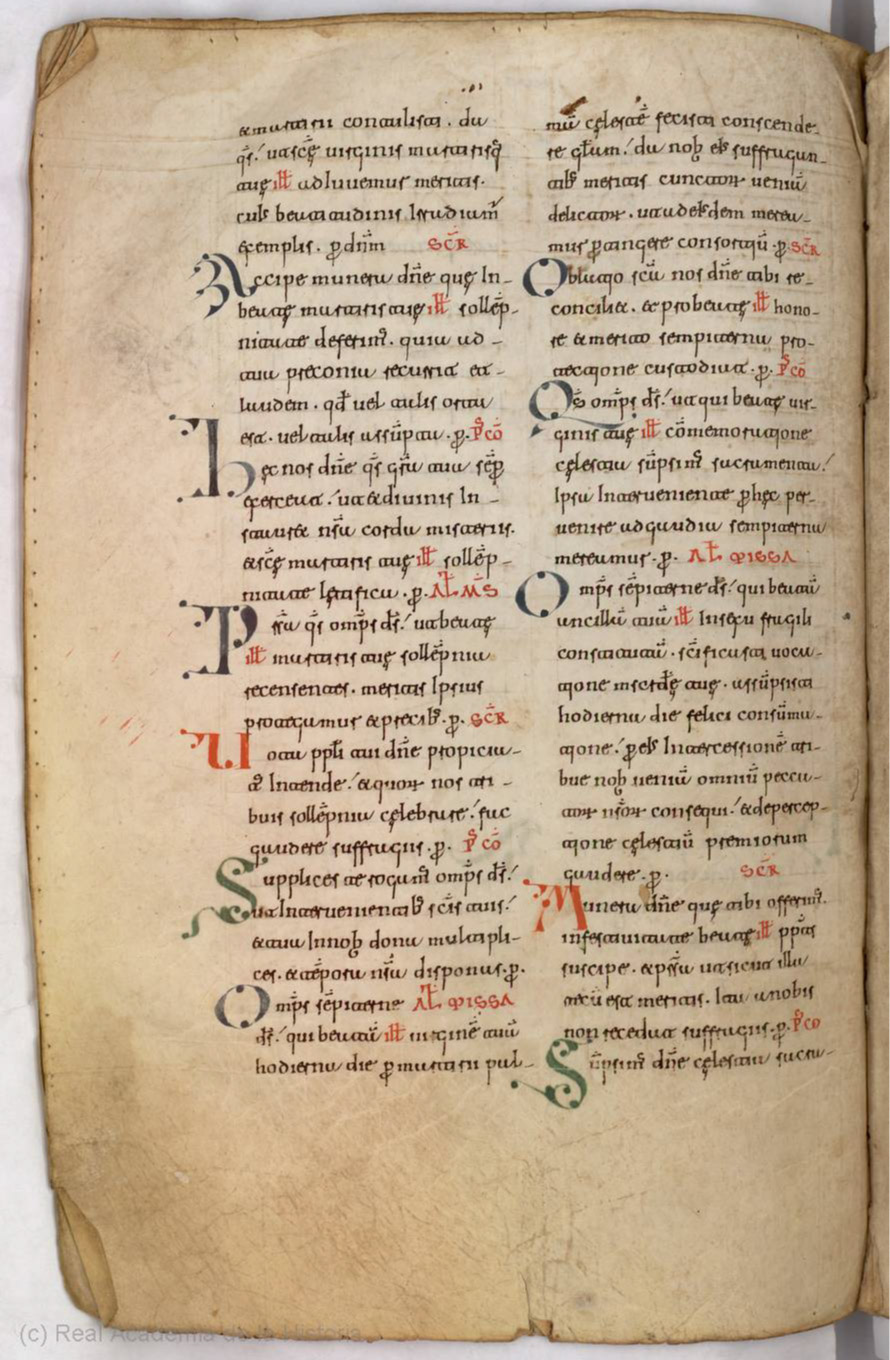 & martirii contulisti. da
qs̄. ut scę̄ virginis martirisq̄
tuę ill̄ adiuvemur meritis.
cuiꝰ beatitudinis Irradiam̄
exemplis. ꝑ dn̄m SCR̄
Accipe munera dn̄e quę In-
beatę martiris tuę ill̄ sollēp-
nitate deferim̄. quia ad-
tua preconia recurrit et-
laudem. qd̄ vel talis orta
est. vel talis assūpta. ꝑ. P̄ CŌ
Hęc nos dn̄e qs̄ gr̄a tua sēꝑ
exerceat. ut & divinis In-
stauret nr̄a corda misteriis.
& scę̄ martiris tuę ill̄ sollēp-
nitate lętificet. ꝑ. AL̄ M̄S
Pr̄sta qs̄ omp̄s ds̄. ut beatę
ill̄ martiris tuę sollēpnia
recensentes. meritis Ipsius
protegamur & precibꝰ. ꝑ. SCR̄
Uota ppl̄i tui dn̄e propicia-
tꝰ Intende. & quoꝝ nos tri-
buis sollēpnia cęlebrare. fac
gaudere suffragiis. ꝑ. P̄ CŌ
Supplices te rogam̄ omp̄s ds̄.
ut Intervenientibꝰ sc̄is tuis.
& tua Innob̄ dona multipli-
ces. & tēpora nr̄a disponas. ꝑ.
Omp̄s sēpiterne AL̄ MISSA
ds̄. qui beatā ill̄ virginē tuā
hodierna die ꝑ martirii pal-
mā cęlestē fecisti conscende-
re gl̄am. da nob̄ eiꝰ suffragan-
tibꝰ meritis cunctoꝝ veniā
delictoꝝ. ut adeiꝰdem merea-
mur ꝑtingere consortiū. ꝑ. SCR̄
Oblatio sc̄a nos dn̄e tibi re-
conciliet. & pro beatę ill̄ hono-
re & merito sempiterna pro-
tectione custodiat. ꝑ. P̄ CŌ
Qs̄ omp̄s ds̄. ut qui beatę vir-
ginis tuę ill̄ cōmemoratione
cęlestia sūpsim̄ sacramenta.
Ipsa Interveniente ꝑ hęc per-
venire adgaudia sempiterna
mereamur. ꝑ. AL̄ MISSA
Omp̄s sēpiterne ds̄. qui beatā
ancillā tuā ill̄ Insexu fragili
constantiā. sc̄ificasti vocu-
tione mscrdę̄ tuę. assūpsisti
hodierna die felici consūma-
tione. ꝑ eiꝰ Intercessionē tri-
bue nob̄ veniā omniū pecca-
toꝝ nr̄oꝝ consequi. & deperce-
tione cęlestiū premiorum
gaudere. ꝑ. SCR̄
Munera dn̄e quę tibi offerim̄.
infestivitate beatę ill̄ ppt̄s
suscipe. & pr̄sta ut sicut illa
tecū est meritis. Ita a nobis
non recedat suffragiis. ꝑ. P̄ CŌ
Sūpsim̄ dn̄e cęlestia sacra-
(c) Real Academia de la Historia